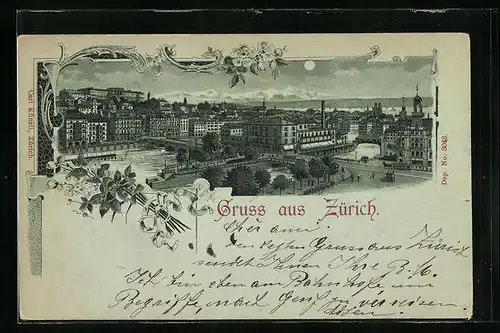 Carl Künzli, Zürich.
Dep. No. 3043.
Gruss aus Zürich.
Cher ami!
Den besten Gruss aus Zürich
sendet Ihnen Ihre B. M.
Ich bin eben am Bahnhofe um
Begriffe, nach Genf zu verreisen.